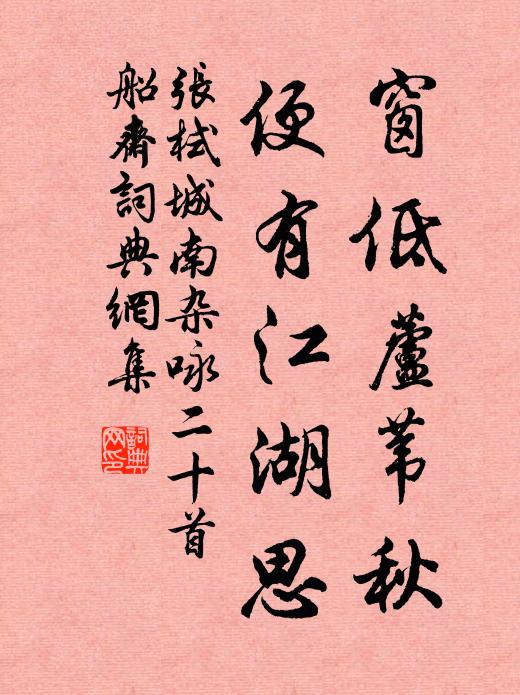 窗低蘆苇秋
便有江湖思
張栻城南杂咏二十首
船齋詞典網集
詞典网印